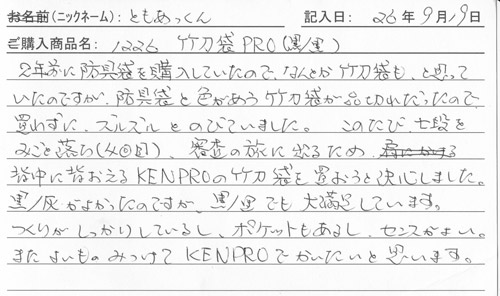 お名前(ニックネーム): ともあっくん 記入日: 26年9月19日
ご購入商品名: 1226 竹刀袋PRO(黒/黒)
2年前に防具袋を購入していたので、なんとか竹刀袋も、と思って
いたのですが、防具袋と色があう竹刀袋が品切れだったので、
買わずに、ズルズルとのびていました。 このたび、七段を
みごと落ち(4回目)、審査の旅に出るため、
背中に背おえるKENPROの竹刀袋を買おうと決心しました。
黒/灰がよかったのですが、黒/黒でも大満足しています。
つくりがしっかりしているし、ポケットもあるし、センスがよい。
またよいものみつけてKENPROでかいたいと思います。